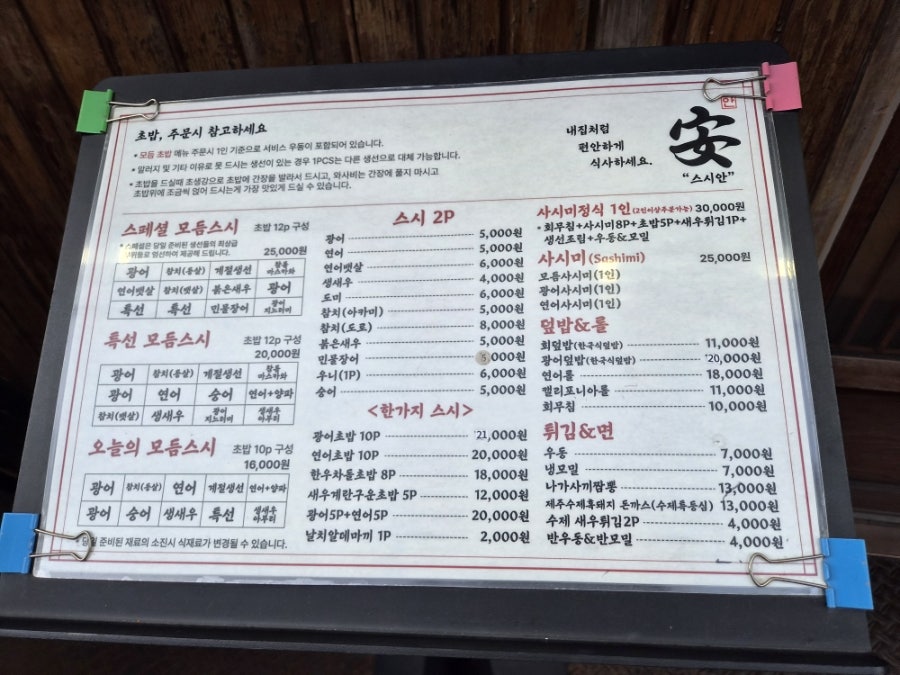 초밥, 주문시 참고하세요
* 모듬 초밥 메뉴 주문시 1인 기준으로 서비스 우동이 포함되어 있습니다.
* 알러지 및 기타 이유로 못 드시는 생선이 있는 경우 1PCS는 다른 생선으로 대체 가능합니다.
* 초밥을 드실때 초생강으로 초밥에 간장을 발라서 드시고, 와사비는 간장에 풀지 마시고
초밥위에 조금씩 얹어 드시는게 가장 맛있게 드실 수 있습니다.
내집처럼
편안하게
식사하세요.
안
安
"스시안"
스페셜 모듬스시 초밥 12p 구성
* 스페셜은 당일 준비된 생선들의 최상급
부위들로 엄선하여 제공해 드립니다. 25,000원
광어 참치(등살) 계절생선 참돔마스까와
연어뱃살 참치(뱃살) 붉은새우 광어
특선 특선 민물장어 광어지느러미
특선 모듬스시 초밥 12p 구성
20,000원
광어 참치(등살) 계절생선 참돔마스까와
광어 연어 숭어 연어+양파
참치(뱃살) 생새우 광어지느러미 생새우아부리
오늘의 모듬스시 초밥 10p 구성
16,000원
광어 참치(등살) 연어 계절생선 연어+양파
광어 숭어 생새우 특선 생새우아부리
* 당일 준비된 재료의 소진시 식재료가 변경될 수 있습니다.
스시 2P
광어 5,000원
연어 5,000원
연어뱃살 6,000원
생새우 4,000원
도미 6,000원
참치(아카미) 5,000원
참치(도로) 8,000원
붉은새우 5,000원
민물장어 5,000원
우니(1P) 6,000원
숭어 5,000원
<한가지 스시>
광어초밥 10P 21,000원
연어초밥 10P 20,000원
한우차돌초밥 8P 18,000원
새우계란구운초밥 5P 12,000원
광어5P+연어5P 20,000원
날치알데마끼 1P 2,000원
사시미정식 1인 (2인이상주문가능) 30,000원
* 회무침+사시미8P+초밥5P+새우튀김1P+
생선조림+우동&모밀
사시미 (Sashimi) 25,000원
모듬사시미(1인)
광어사시미(1인)
연어사시미(1인)
덮밥&롤
회덮밥(한국식덮밥) 11,000원
광어덮밥(한국식덮밥) 20,000원
연어롤 18,000원
캘리포니아롤 11,000원
회무침 10,000원
튀김&면
우동 7,000원
냉모밀 7,000원
나가사끼짬뽕 13,000원
제주수제흑돼지 돈까스(수제특등심) 13,000원
수제 새우튀김2P 4,000원
반우동&반모밀 4,000원